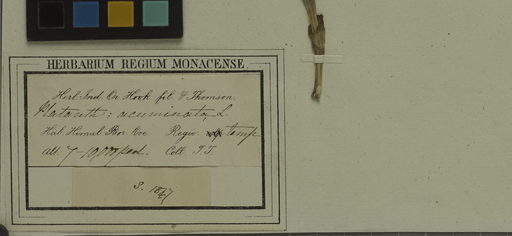 HERBARIUM REGIUM MONACENSE.
Herb. Ind. Or. Hook fil. & Thomson.
Platanth: acuminata, L.
Hab. Himal. Bor. Occ. Regio temp
Alt. 7-10,000 ped. Coll. T.T.
S. 1847